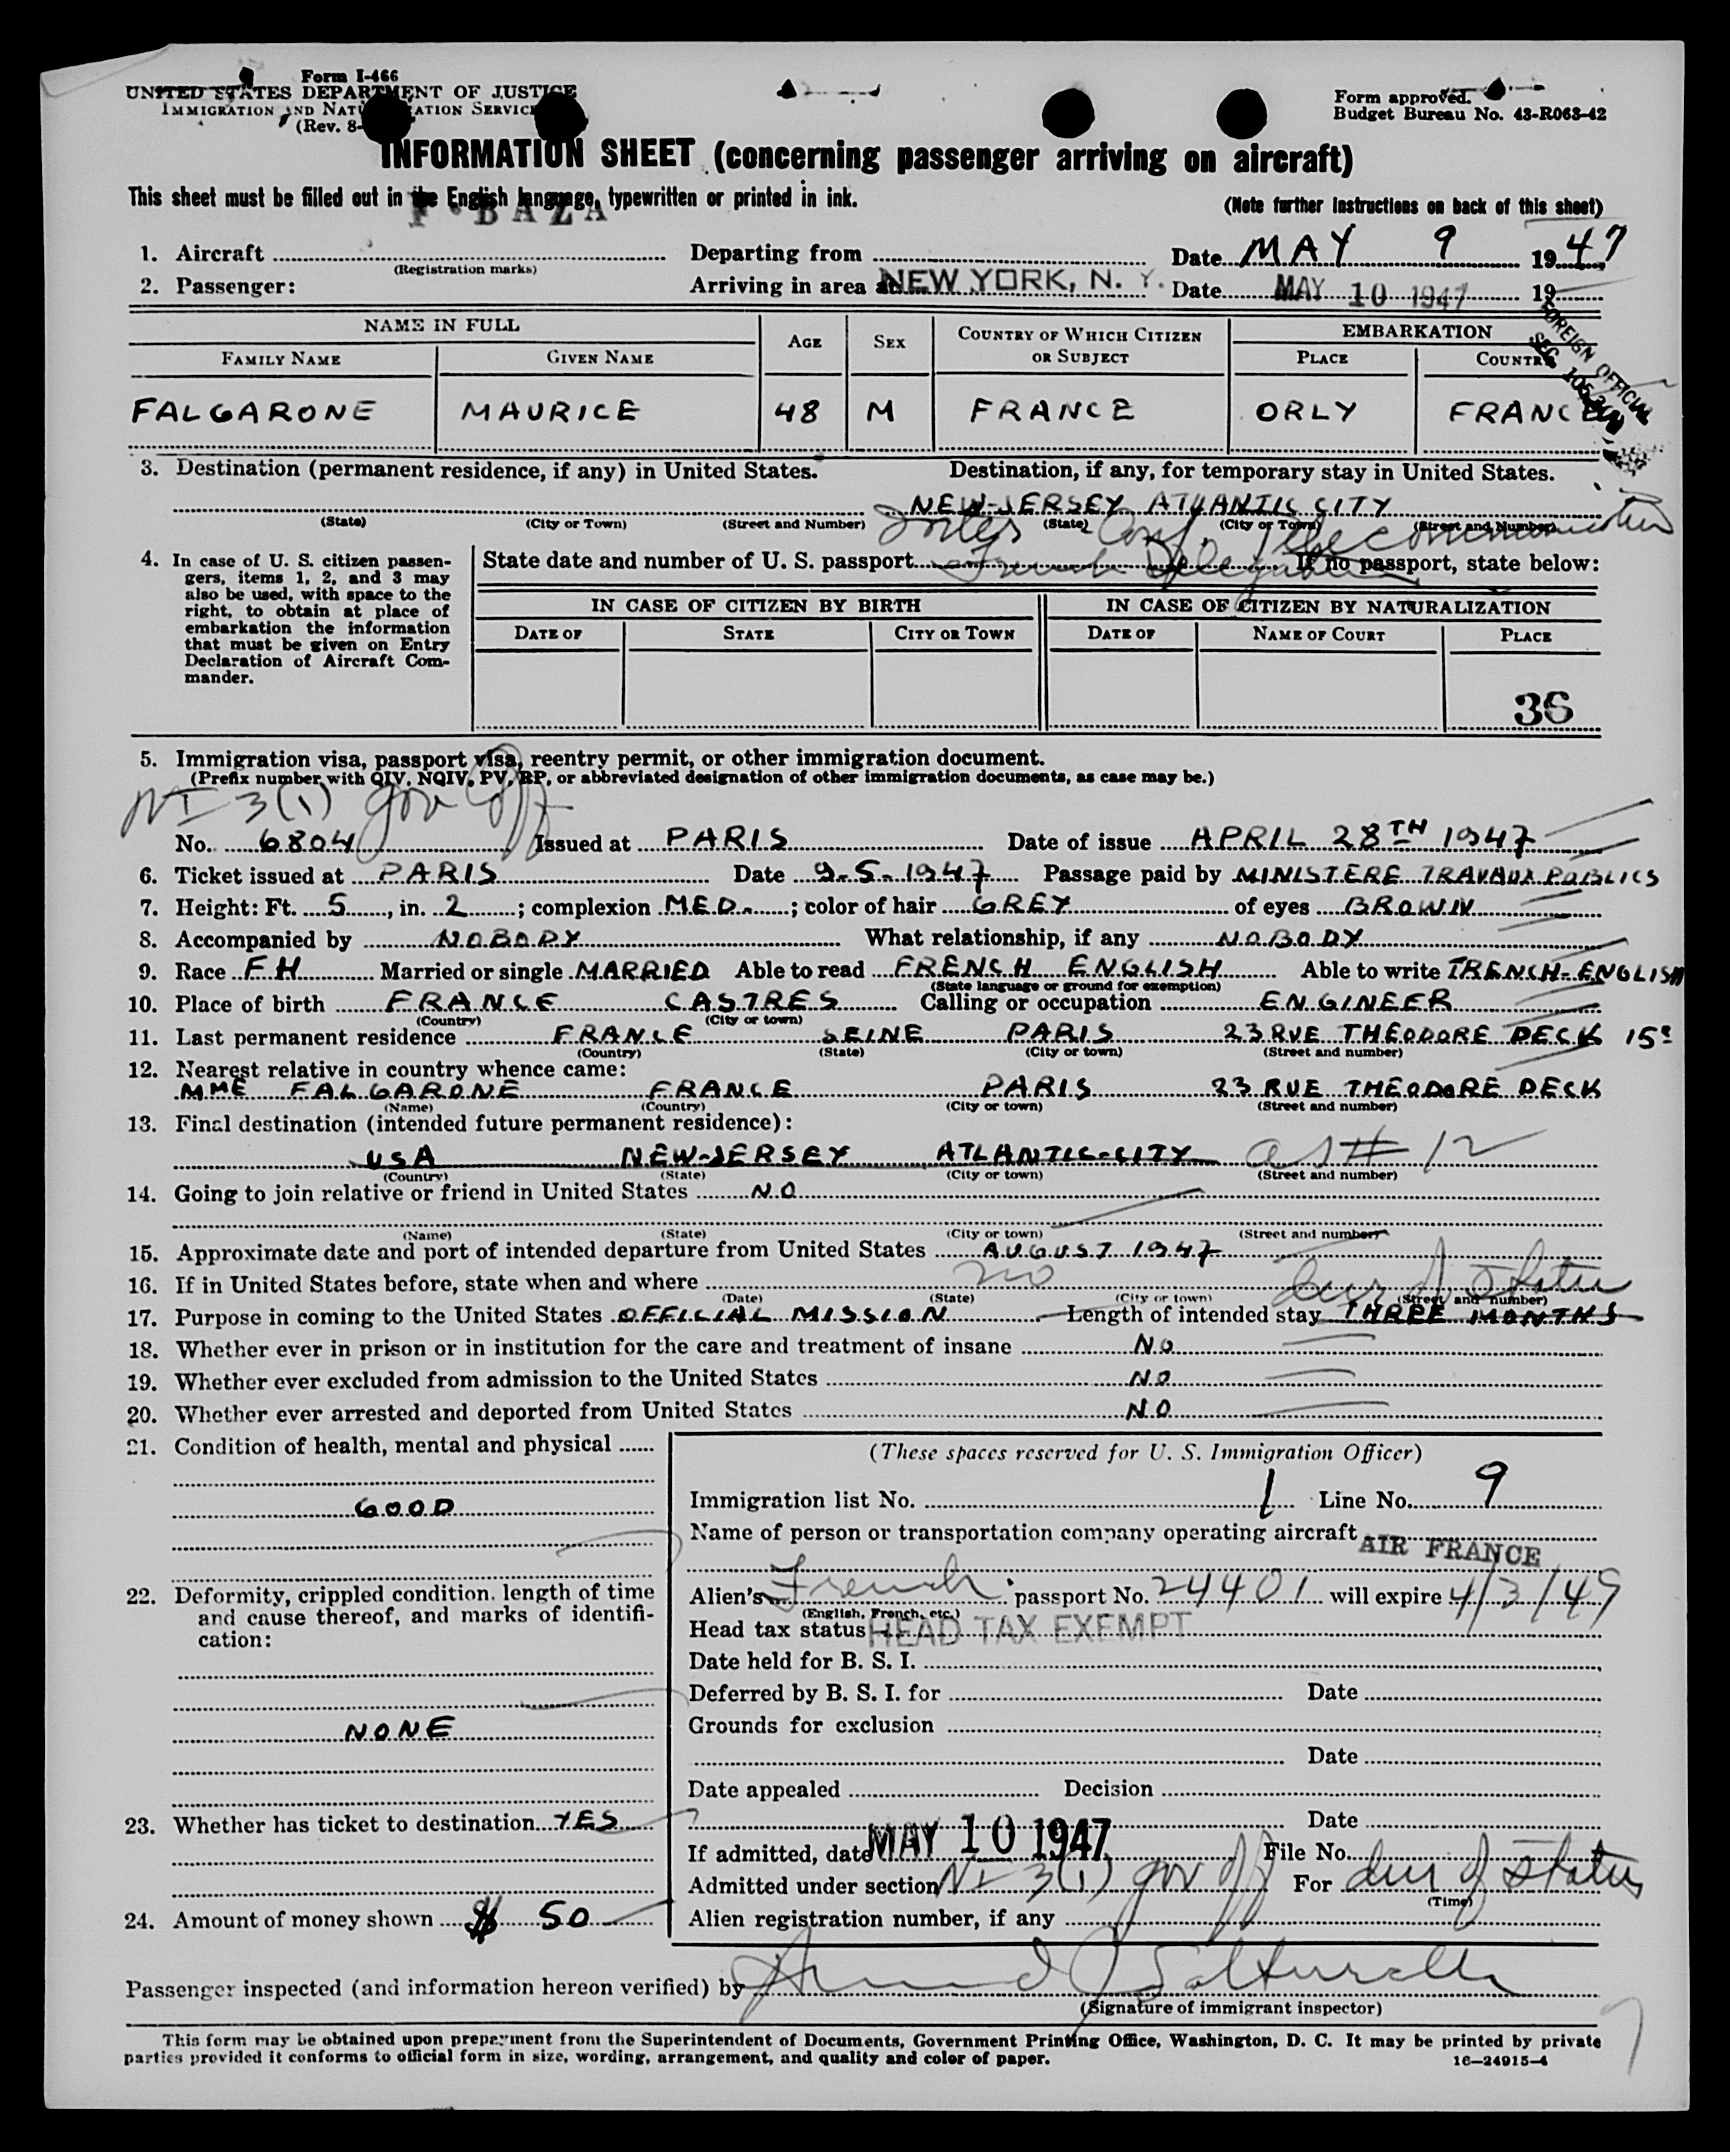 Form I-466
UNITED STATES DEPARTMENT OF JUSTICE
IMMIGRATION AND NATURALIZATION SERVICE
(Rev. 8-
Form approved.
Budget Bureau No. 43-R063-42
INFORMATION SHEET (concerning passenger arriving on aircraft)
This sheet must be filled out in the English language, typewritten or printed in ink.
(Note further instructions on back of this sheet)
F-BAZA
1. Aircraft (Registration marks) Departing from Date MAY 9 1947
2. Passenger: Arriving in area at NEW YORK, N. Y. Date MAY 10 1947 19
FOREIGN OFFICIAL
NAME IN FULL
FAMILY NAME GIVEN NAME AGE SEX COUNTRY OF WHICH CITIZEN OR SUBJECT EMBARKATION PLACE COUNTRY
FALGARONE MAURICE 48 M FRANCE ORLY FRANCE
3. Destination (permanent residence, if any) in United States. Destination, if any, for temporary stay in United States.
NEW-JERSEY ATLANTIC CITY
(State) (City or Town) (Street and Number) (State) (City or Town) (Street and Number)
Conf. Telecommunication
French Delegation
4. In case of U. S. citizen passen-
gers, items 1, 2, and 3 may
also be used, with space to the
right, to obtain at place of
embarkation the information
that must be given on Entry
Declaration of Aircraft Com-
mander.
State date and number of U. S. passport If no passport, state below:
IN CASE OF CITIZEN BY BIRTH IN CASE OF CITIZEN BY NATURALIZATION
DATE OF STATE CITY OR TOWN DATE OF NAME OF COURT PLACE
36
5. Immigration visa, passport visa, reentry permit, or other immigration document.
(Prefix number with QIV, NQIV, PV, RP, or abbreviated designation of other immigration documents, as case may be.)
NI 3(1) gov off
No. 6804 Issued at PARIS Date of issue APRIL 28TH 1947
6. Ticket issued at PARIS Date 9-5-1947 Passage paid by MINISTERE TRAVAUX PUBLICS
7. Height: Ft. 5, in. 2; complexion MED.; color of hair GREY of eyes BROWN
8. Accompanied by NOBODY What relationship, if any NOBODY
9. Race FH Married or single MARRIED Able to read FRENCH ENGLISH Able to write FRENCH-ENGLISH
(State language or ground for exemption)
10. Place of birth FRANCE CASTRES Calling or occupation ENGINEER
(Country) (City or town)
11. Last permanent residence FRANCE SEINE PARIS 23 RUE THEODORE DECK 15e
(Country) (State) (City or town) (Street and number)
12. Nearest relative in country whence came:
MME FALGARONE FRANCE PARIS 23 RUE THEODORE DECK
(Name) (Country) (City or town) (Street and number)
13. Final destination (intended future permanent residence):
USA NEW-JERSEY ATLANTIC-CITY as # 12
(Country) (State) (City or town) (Street and number)
14. Going to join relative or friend in United States NO
(Name) (State) (City or town) (Street and number)
15. Approximate date and port of intended departure from United States AUGUST 1947
16. If in United States before, state when and where no
(Date) (State) (City or town) (Street and number)
dur of status
17. Purpose in coming to the United States OFFICIAL MISSION Length of intended stay THREE MONTHS
18. Whether ever in prison or in institution for the care and treatment of insane NO
19. Whether ever excluded from admission to the United States NO
20. Whether ever arrested and deported from United States NO
21. Condition of health, mental and physical
GOOD
22. Deformity, crippled condition, length of time
and cause thereof, and marks of identifi-
cation:
NONE
23. Whether has ticket to destination YES
24. Amount of money shown $ 50
(These spaces reserved for U. S. Immigration Officer)
Immigration list No. 1 Line No. 9
Name of person or transportation company operating aircraft
AIR FRANCE
Alien's French passport No. 24401 will expire 4/3/49
(English, French, etc.)
Head tax status HEAD TAX EXEMPT
Date held for B. S. I.
Deferred by B. S. I. for Date
Grounds for exclusion
Date
Date appealed Decision
Date
If admitted, date MAY 10 1947 File No.
Admitted under section NI 3(1) gov off For dur of status
(Time)
Alien registration number, if any
Passenger inspected (and information hereon verified) by
(Signature of immigrant inspector)
This form may be obtained upon prepayment from the Superintendent of Documents, Government Printing Office, Washington, D. C. It may be printed by private
parties provided it conforms to official form in size, wording, arrangement, and quality and color of paper.
16—24915-4